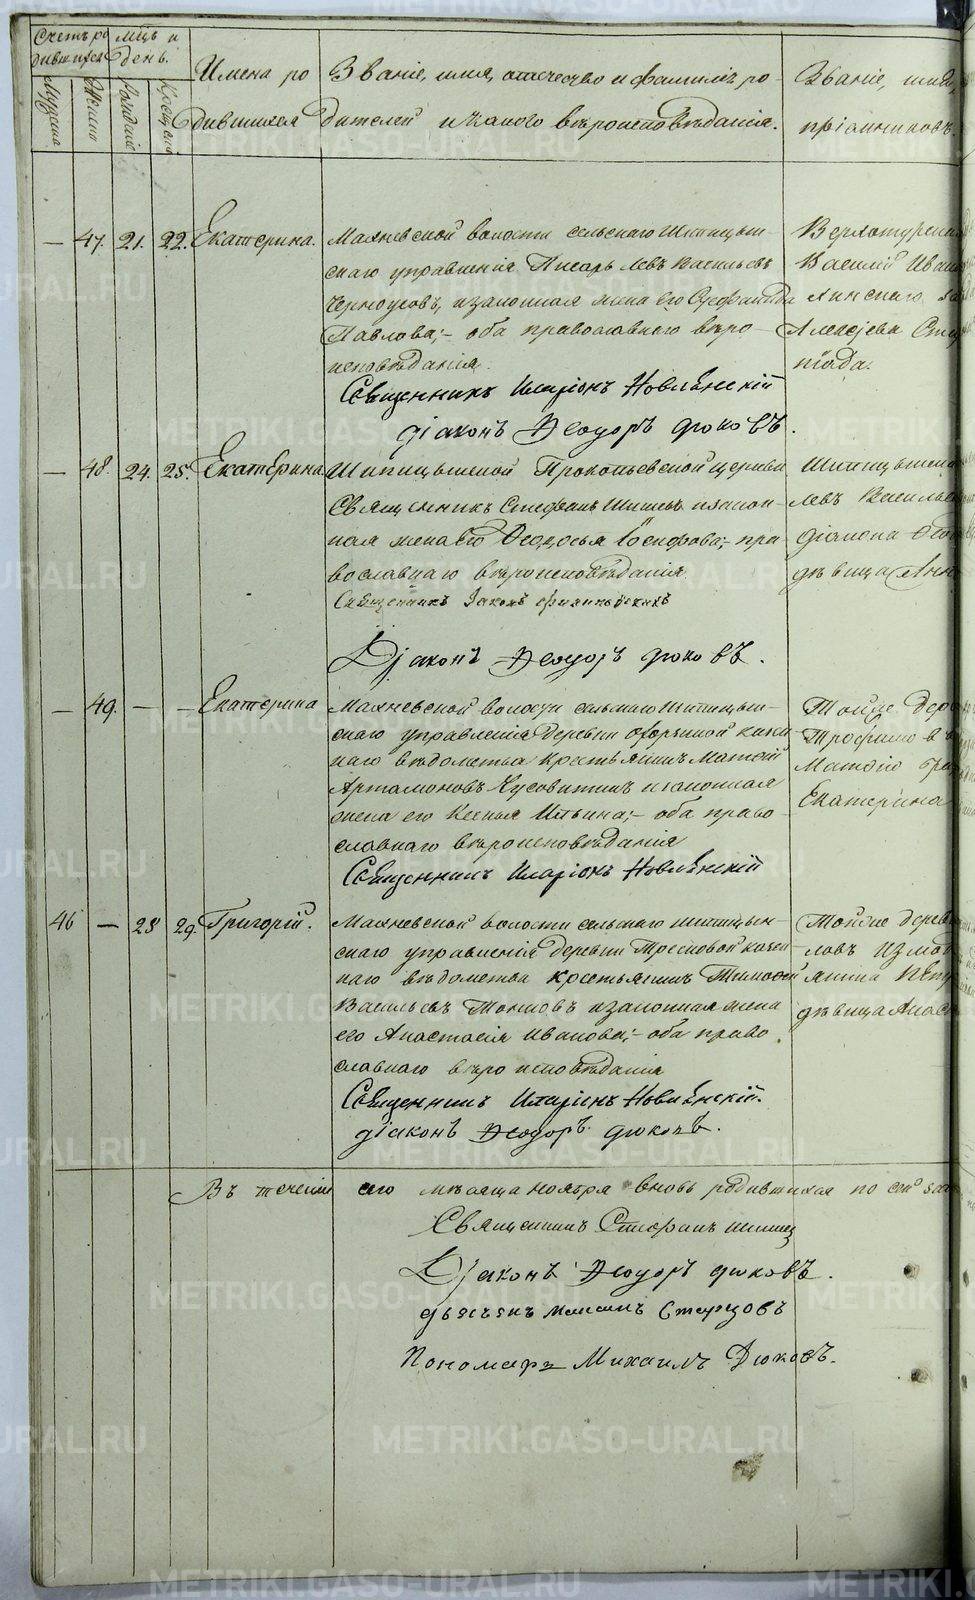 Счетъ ро
дившихся
мцъ и
день.
Имена ро
дившихся
Званіе, имя, отчество и фамилія ро-
дителей и какого вѣроисповѣданія.
Званіе, имя,
пріемниковъ.
Мужеска
Женска
Рожденія
Крещенія
— 47. 21. 22. Екатерина.
Махневской волости сельскаго Шипицын-
скаго управленія Писарь Левъ Васильевъ
Черноусовъ, и законная жена его
Павлова; — оба православнаго вѣро-
исповѣданія.
Священникъ Иларіонъ Новлянскій
діаконъ Ѳеодоръ Дюковъ.
Верхотурскій
Василій Иван
Алексѣева
— 48. 24. 25. Екатерина
Шипицынской Прокопьевской церкви
Священникъ Стефанъ Шишевъ и закон-
ная жена его Ѳедосья Іосифова; — пра
вославнаго вѣроисповѣданія
Священникъ
Діаконъ Ѳеодоръ Дюковъ.
Шипицынской
Левъ Васильев
діакона Ѳеод
дѣвица Анн
— 49. — — Екатерина
Махневской волости сельскаго Шипицын-
скаго управленія деревни казен
наго вѣдомства крестьянинъ Матѳій
Артамоновъ Чусовитинъ и законная
жена его Ксенья Ильина; — оба право
славнаго вѣроисповѣданія
Священникъ Иларіонъ Новлянскій
Тойже дере
Трофимовъ
Матѳія
Екатерина
46 — 28 29. Григорій.
Махневской волости сельскаго Шипицын-
скаго управленія деревни Тресковой казен
наго вѣдомства крестьянинъ Тимоѳей
Васильевъ и законная жена
его Анастасія Иванова; — оба право
славнаго вѣроисповѣданія
Священникъ Иларіонъ Новлянскій.
діаконъ Ѳеодоръ Дюковъ.
Тойже дерев
ловъ Измо
янина Петр
дѣвица Анас
Въ теченіи сего мѣсяца ноября вновь родившихся по сей
Священникъ Стефанъ Шишев
Діаконъ Ѳеодоръ Дюковъ.
дьячекъ Старцовъ
Пономарь Михаилъ Дюковъ.
METRIKI.GASO-URAL.RU